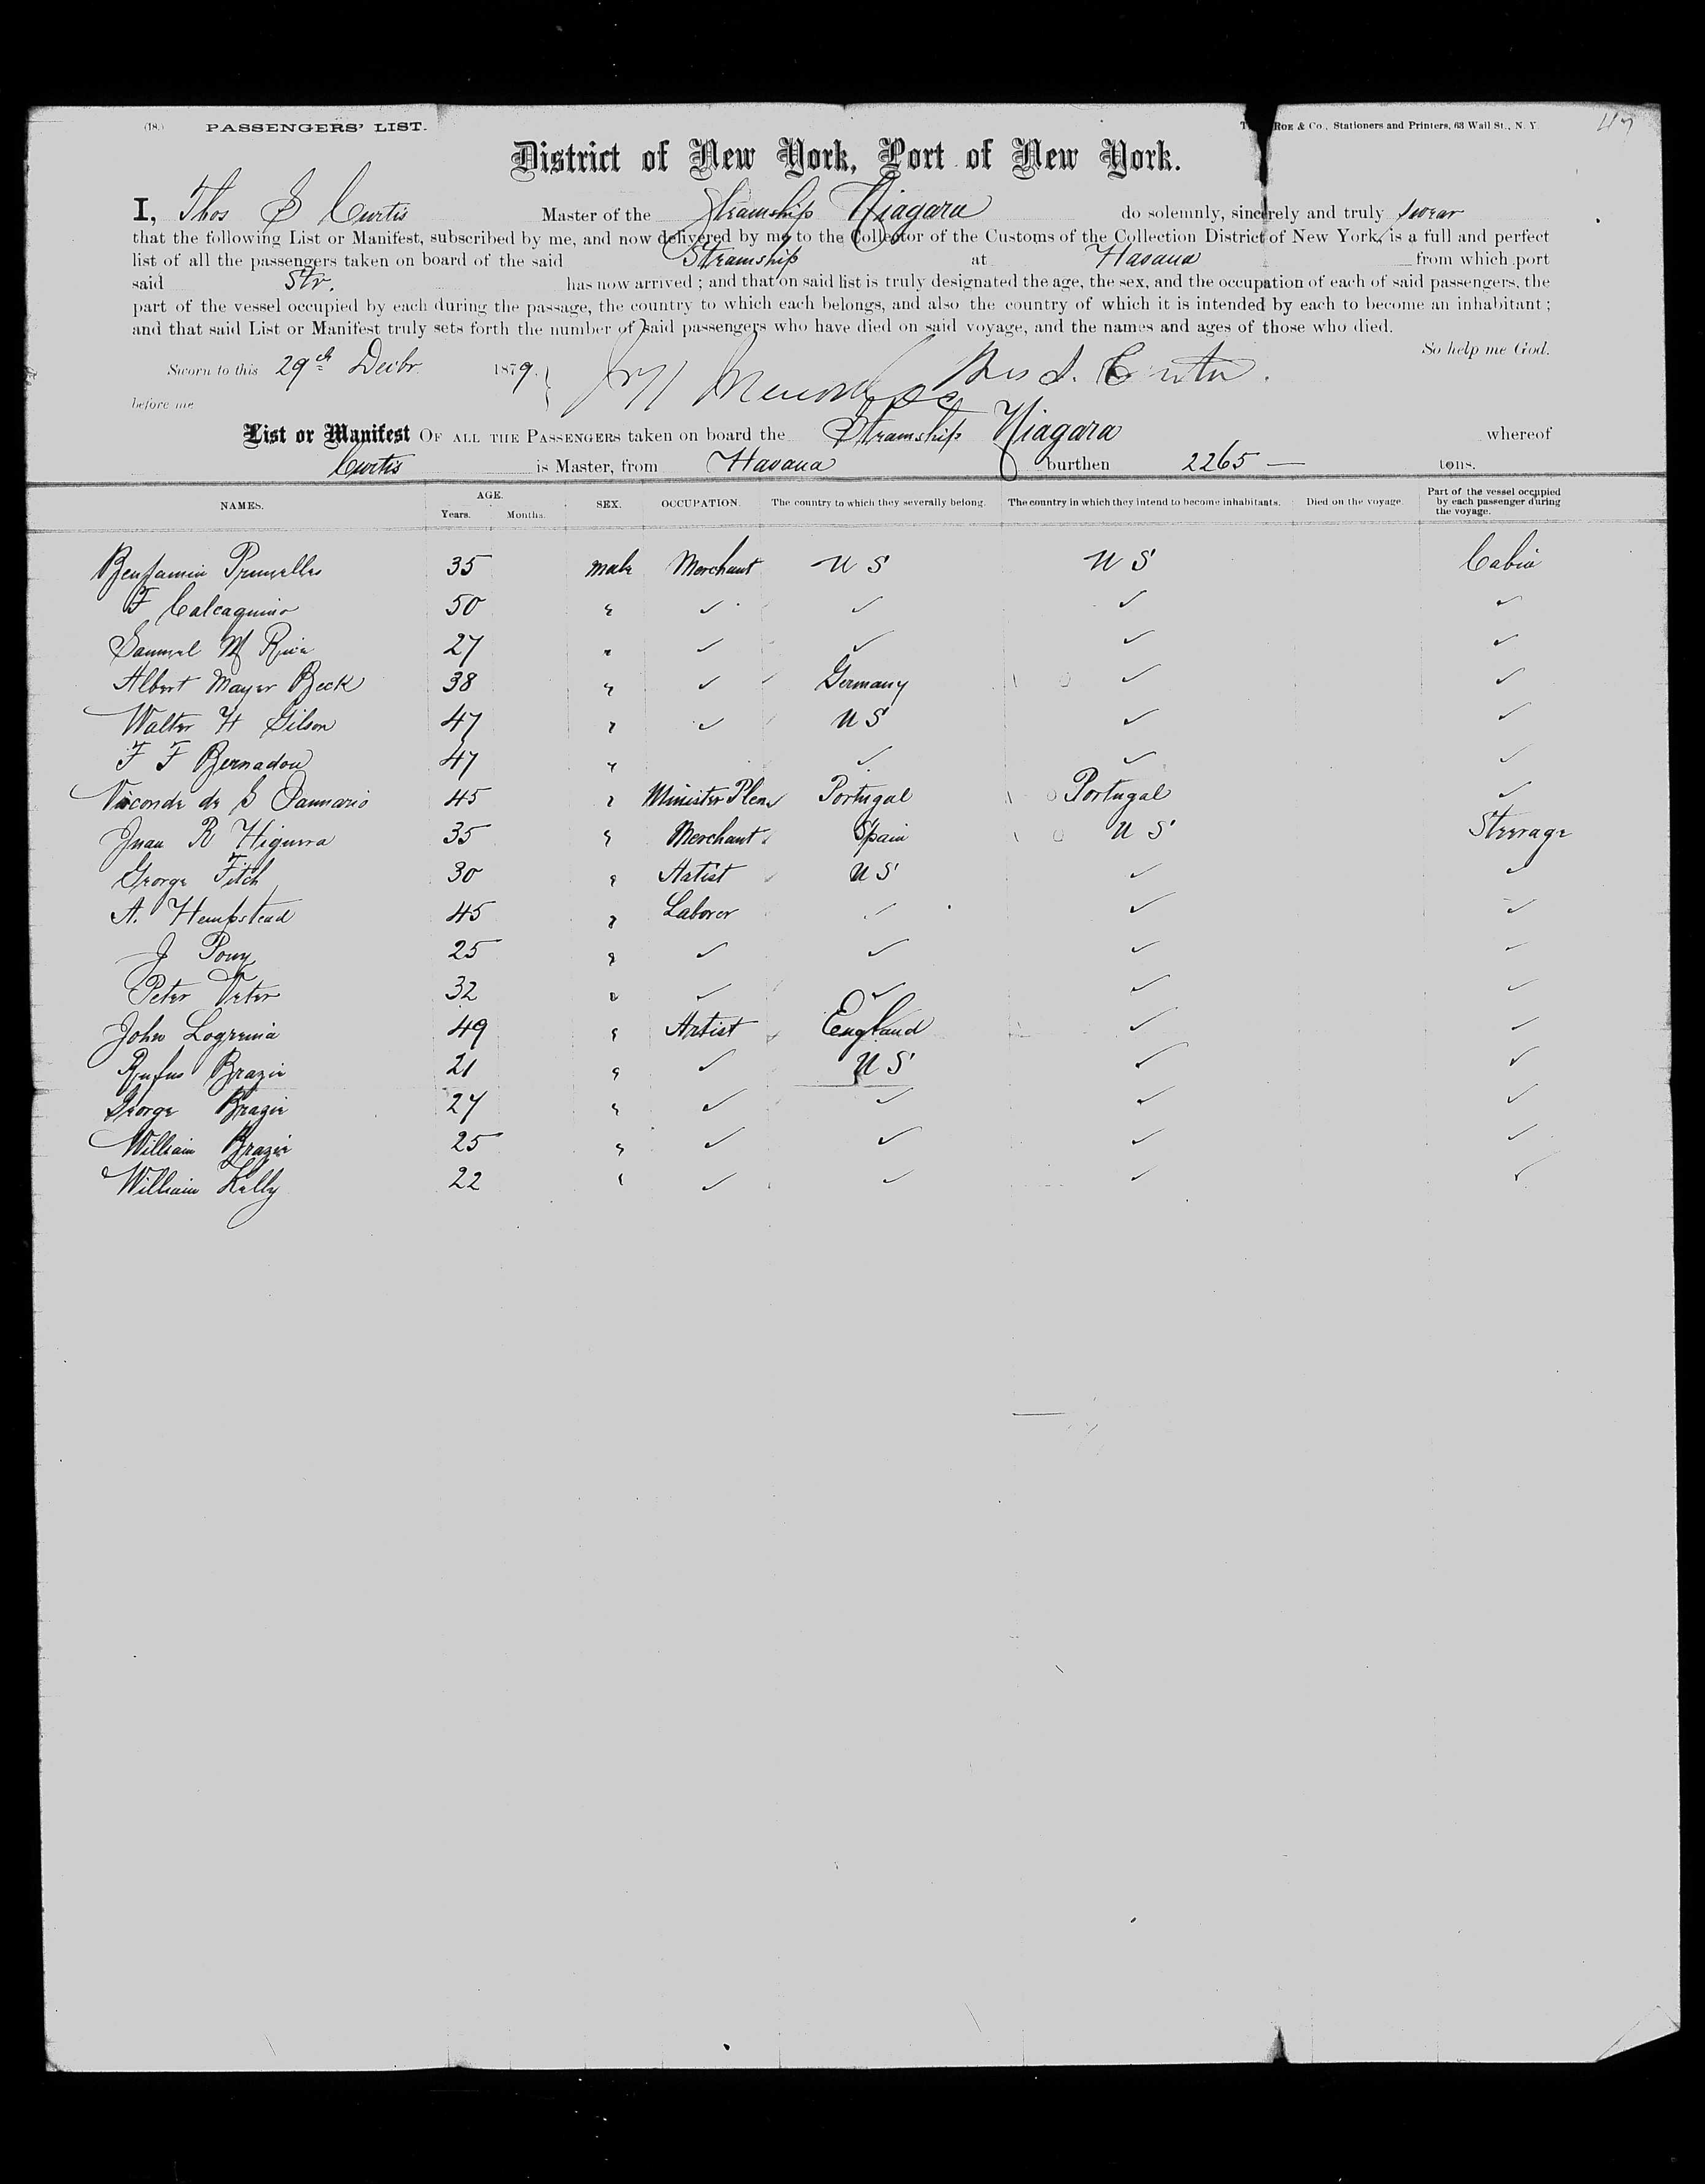 (18.) PASSENGERS' LIST.
Roe & Co., Stationers and Printers, 63 Wall St., N. Y.
District of New York, Port of New York.
I, Thos S Curtis Master of the Steamship Niagara do solemnly, sincerely and truly swear
that the following List or Manifest, subscribed by me, and now delivered by me to the Collector of the Customs of the Collection District of New York, is a full and perfect
list of all the passengers taken on board of the said Steamship at Havana from which port
said Str. has now arrived ; and that on said list is truly designated the age, the sex, and the occupation of each of said passengers, the
part of the vessel occupied by each during the passage, the country to which each belongs, and also the country of which it is intended by each to become an inhabitant ;
and that said List or Manifest truly sets forth the number of said passengers who have died on said voyage, and the names and ages of those who died.
So help me God.
Sworn to this 29th Decbr 1879. Thos S. Curtis.
before me
List or Manifest OF ALL THE PASSENGERS taken on board the Steamship Niagara whereof
Curtis is Master, from Havana burthen 2265 — tons.
NAMES. AGE. Years. Months. SEX. OCCUPATION. The country to which they severally belong. The country in which they intend to become inhabitants. Died on the voyage. Part of the vessel occupied by each passenger during the voyage.
Benjamin 35 male Merchant U S U S Cabin
F Calcagnino 50 " ✓ ✓ ✓ ✓
Samuel M Rice 27 " ✓ ✓ ✓ ✓
Albert Mayer Beck 38 " ✓ Germany ✓ ✓
Walter H Gilson 47 " ✓ U S ✓ ✓
F F Bernadou 47 " ✓ ✓ ✓
Visconde de S Januario 45 " Minister Plen Portugal Portugal ✓
Juan R Higuera 35 " Merchant Spain U S Steerage
George Fitch 30 " Artist U S ✓ ✓
A. Hempstead 45 " Laborer ✓ ✓ ✓
J 25 " ✓ ✓ ✓ ✓
Peter Veter 32 " ✓ ✓ ✓ ✓
John 49 " Artist England ✓ ✓
Rufus Brazie 21 " ✓ U S ✓ ✓
George Brazie 27 " ✓ ✓ ✓ ✓
William Brazie 25 " ✓ ✓ ✓ ✓
William Kelly 22 " ✓ ✓ ✓ ✓